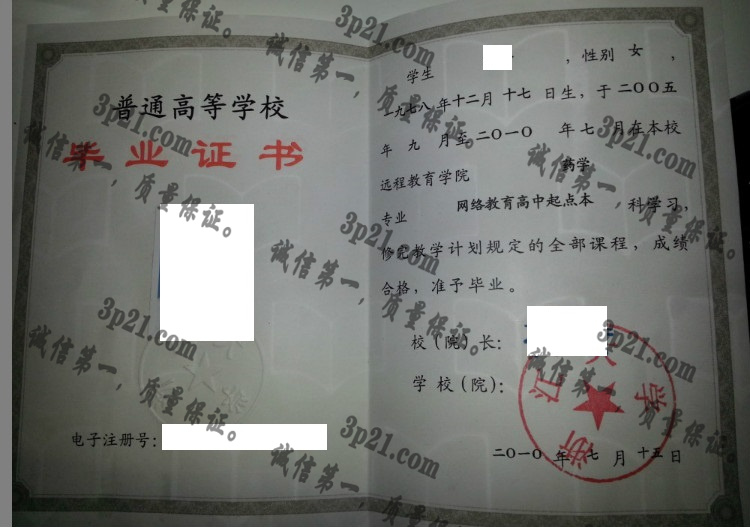 普通高等学校
毕业证书
电子注册号:
学生 ,性别 女 ,
一九七八年十二月 十七 日生,于二〇〇五
年 九 月至二〇一〇 年 七 月在本校
远程教育学院 药学
专业 网络教育高中起点本 科学习,
修完教学计划规定的全部课程,成绩
合格,准予毕业。
校(院)长:
学校(院):
浙江大学
二〇一〇 年 七 月 十五 日
3p21.com
诚信第一,质量保证。
3p21.com
诚信第一,质量保证。
3p21.com
诚信第一,质量保证。
3p21.com
诚信第一,质量保证。
3p21.com
诚信第一,质量保证。
3p21.com
诚信第一,质量保证。
3p21.com
诚信第一,质量保证。